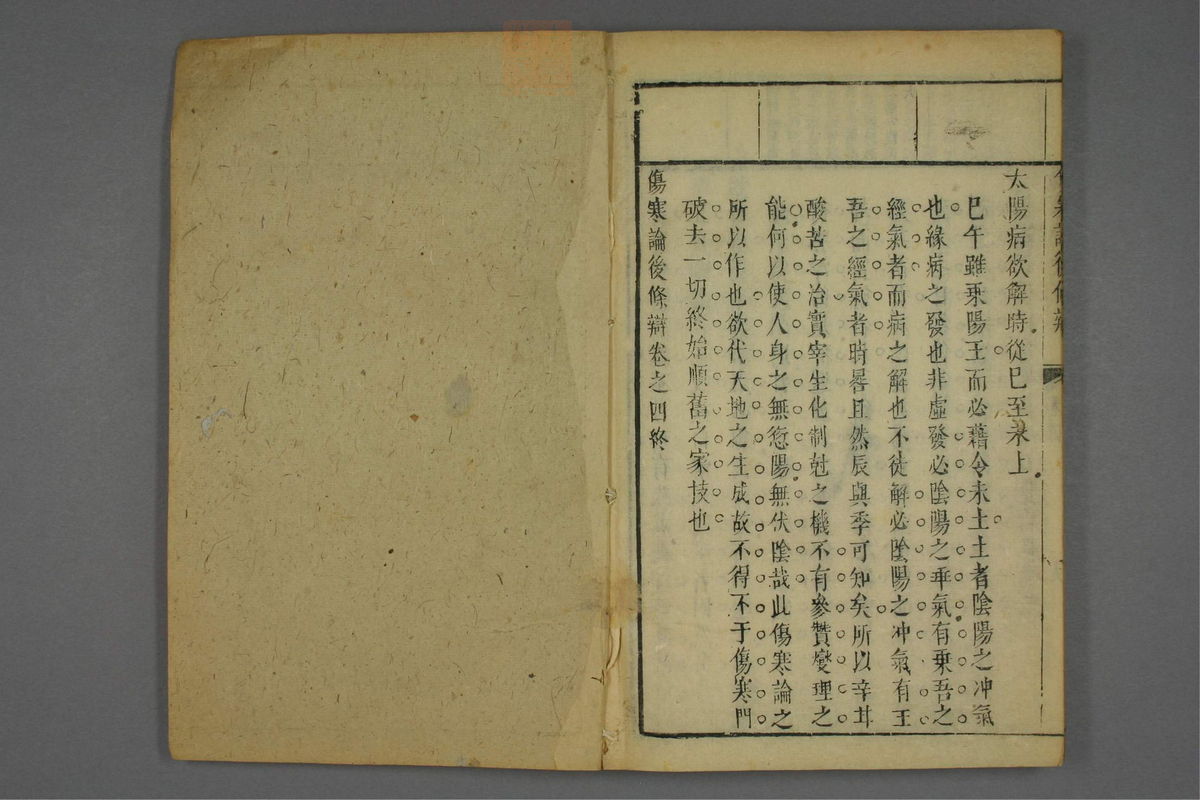 傷寒論後條辯
太陽病欲解時從巳至未上
巳午雖乗陽王而必藉令未土土者陰陽之冲氣
也緣病之發也非虛發必陰陽之乖氣有乗吾之
經氣者而病之解也不徒解必陰陽之冲氣有王
吾之經氣者時晷且然辰與季可知矣所以辛甘
酸苦之治實宰生化制尅之機不有參贊燮理之
能何以使人身之無愆陽無伏陰哉此傷寒論之
所以作也欲代天地之生成故不得不于傷寒門
破去一切終始順舊之家技也
傷寒論後條辯卷之四終